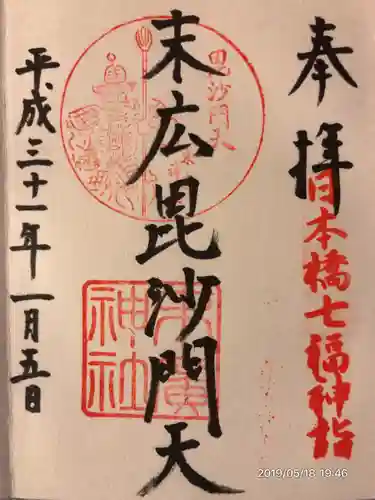 奉拝
日本橋七福神詣
末広毘沙門天
毘沙門天
末廣神社
平成三十一年一月五日
2019/05/18 19:46